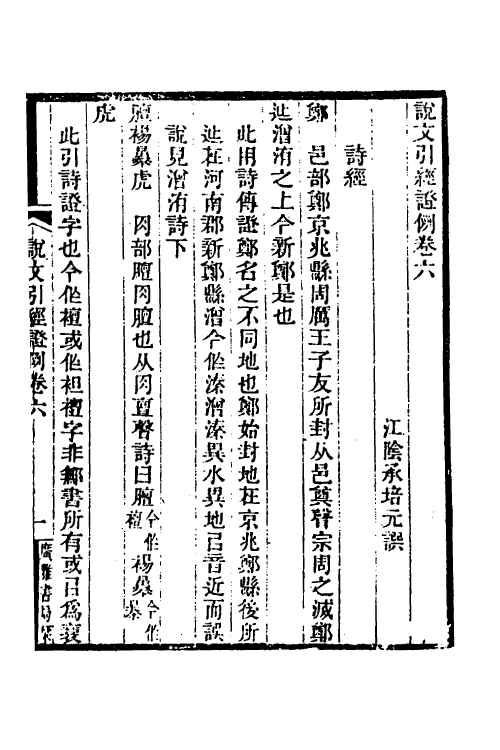 說文引經證例卷六
江陰承培元譔
詩經
鄭　邑部鄭京兆縣周厲王子友所封从邑奠聲宗周之滅鄭
徙潧洧之上今新鄭是也
此用詩傳證鄭名之不同地也鄭始封地在京兆鄭縣後所
徙在河南郡新鄭縣潧今作溱潧溱異水異地㠯音近而誤
說見潧洧詩下
膻裼㬥虎　肉部膻肉膻也从肉亶聲詩曰膻今作襢裼㬥今作暴
虎
此引詩證字也今作襢或作袒襢字非鄦書所有或㠯為襄
說文引經證例卷六
一
廣雅書局栞